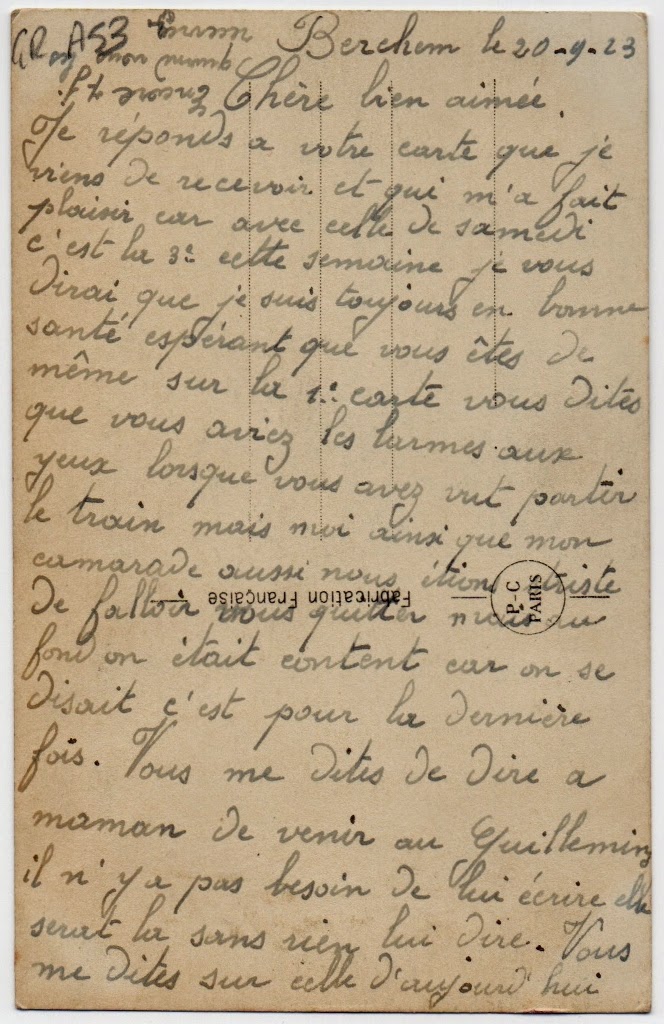 GR A53
Berchem le 20-9-23
Encore 7 J.
Chère bien aimée.
Je réponds a votre carte que je
viens de recevoir et qui m'a fait
plaisir car avec celle de samedi
c'est la 3e cette semaine je vous
dirai que je suis toujours en bonne
santé espérant que vous êtes de
même sur la 1re carte vous dites
que vous aviez les larmes aux
yeux lorsque vous avez vut partir
le train mais moi ainsi que mon
camarade aussi nous étions triste
de falloir vous quitter mais au
fond on était content car on se
disait c'est pour la dernière
fois. Vous me dites de dire a
maman de venir au Guillemins
il n'y a pas besoin de lui écrire elle
serat la sans rien lui dire. Vous
me dites sur celle d'aujourd'hui
Fabrication Française
P-C
PARIS